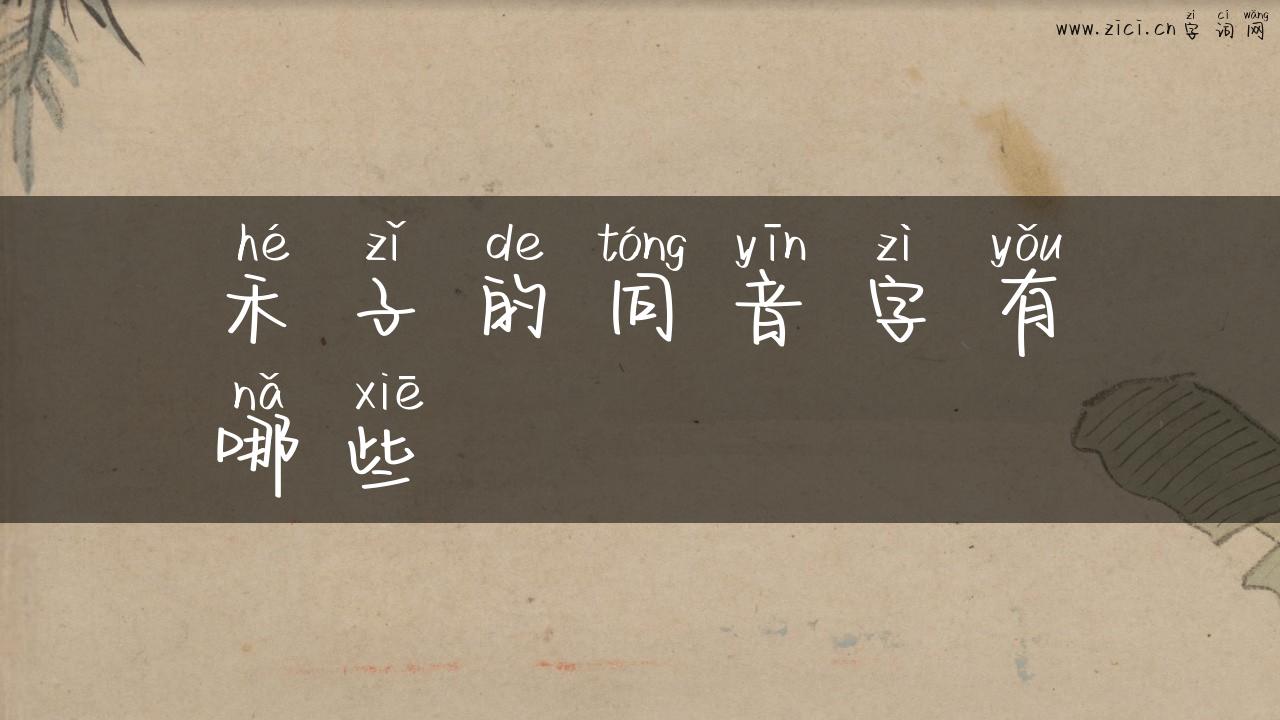 zì cí wǎng
www.zici.cn 字 词 网
hé zǐ de tóng yīn zì yǒu
禾 子 的 同 音 字 有
nǎ xiē
哪 些